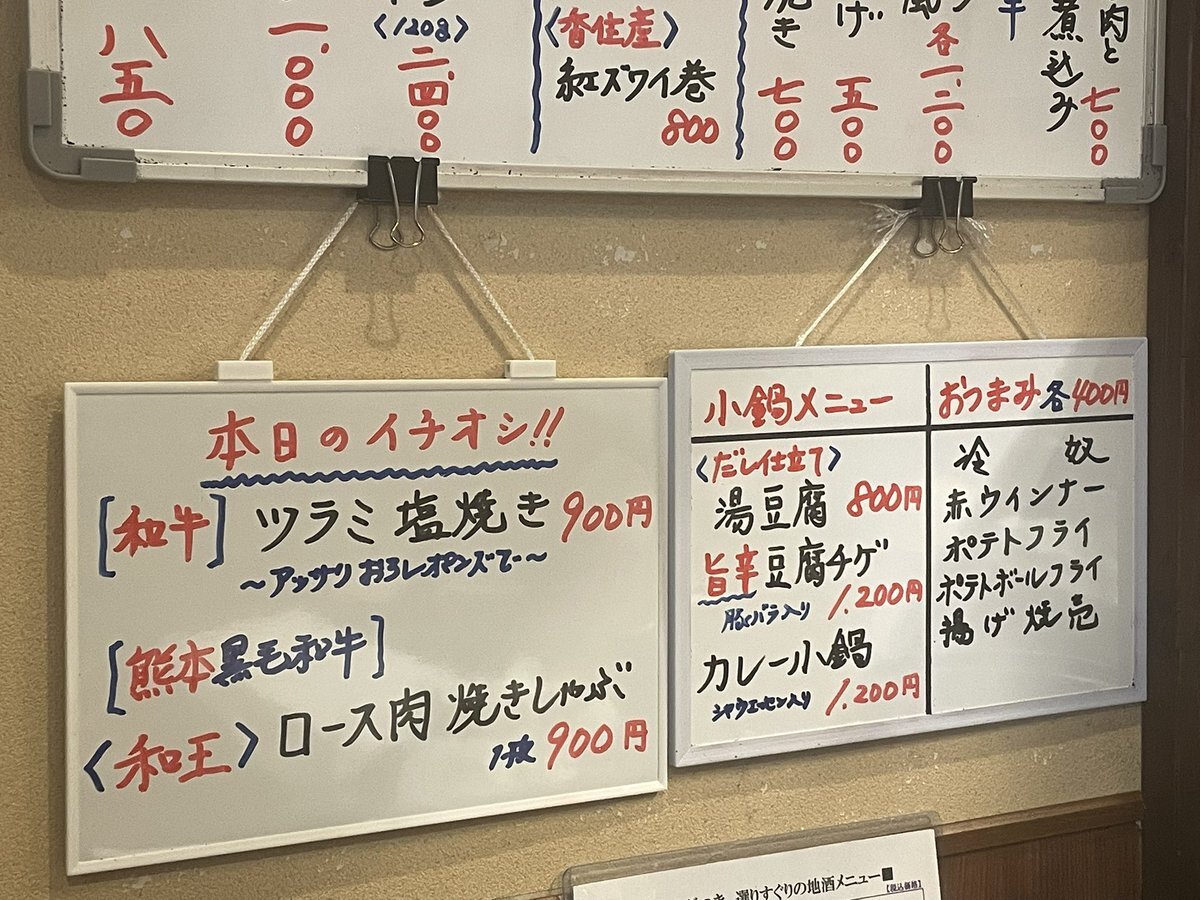 八五〇
一、〇〇〇
〈120g〉
二、四〇〇
〈香住産〉
紅ズワイ巻
800
焼き
七〇〇
げ
五〇〇
各一、二〇〇
牛
肉と
煮込み
七〇〇
本日のイチオシ!!
[和牛] ツラミ塩焼き 900円
～アッサリおろしポンズで～
[熊本黒毛和牛]
〈和王〉ロース肉焼きしゃぶ
1枚 900円
小鍋メニュー
〈だし仕立て〉
湯豆腐 800円
旨辛豆腐チゲ
豚バラ入り 1.200円
カレー小鍋
シャウエッセン入り 1.200円
おつまみ各400円
冷 奴
赤ウィンナー
ポテトフライ
ポテトボールフライ
揚げ焼売
選りすぐりの地酒メニュー■
【税込価格】